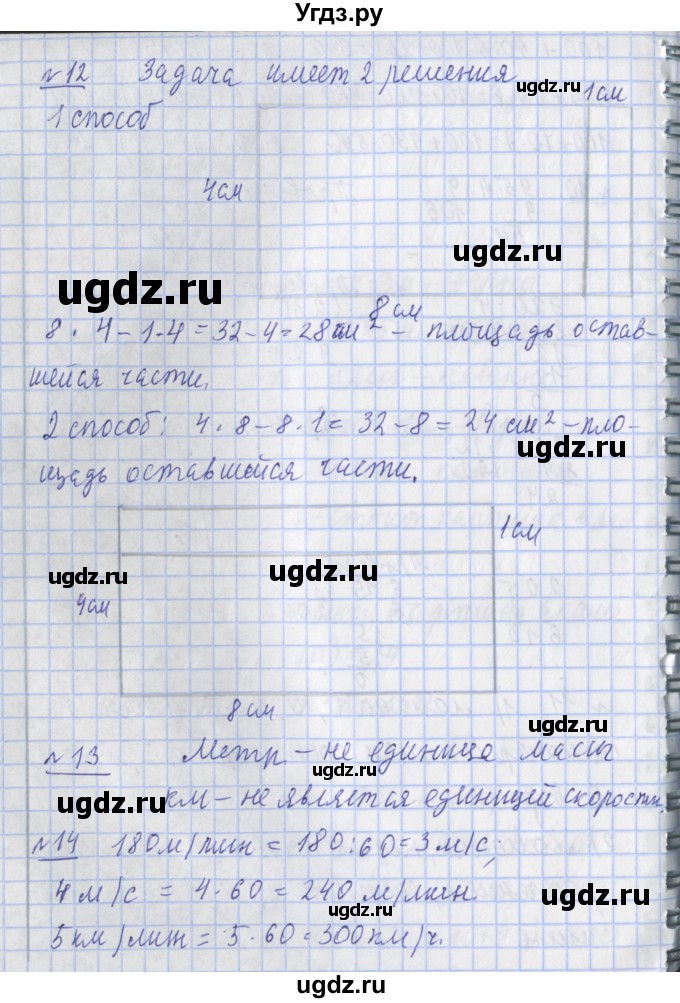 Угдз.ру
№12 Задача имеет 2 решения
1 способ
1см
4см
ugdz.ru
ugdz.ru
8см
8 · 4 - 1 · 4 = 32 - 4 = 28 см² - площадь остав-
шейся части.
ugdz.ru
2 способ: 4 · 8 - 8 · 1 = 32 - 8 = 24 см² - пло-
щадь оставшейся части.
ugdz.ru
1см
ugdz.ru
ugdz.ru
4см
8см
№13 Метр - не единица массы
ugdz.ru
км - не является единицей скорости.
ugdz.ru
№14 180м/мин = 180:60=3м/с;
ugdz.ru
4м/с = 4·60 = 240 м/мин.
ugdz.ru
5км/мин = 5·60=300км/ч.
ugdz.ru